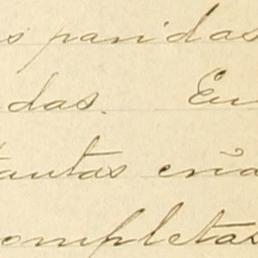 s paridas
das. En
tantas cria
completas